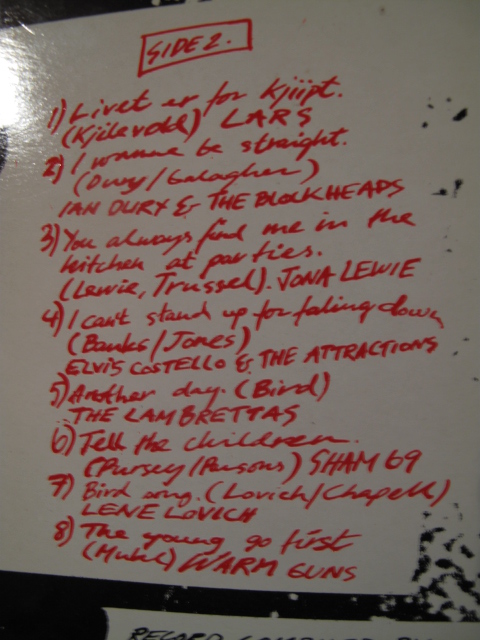 SIDE 2.
1) Livet er for kjiipt.
(Kjelevold) LARS
2) I wanna be straight.
(Dury/Galagher)
IAN DURY & THE BLOCKHEADS
3) You always find me in the
kitchen at parties.
(Lewie, Trussel). JONA LEWIE
4) I can't stand up for faling down
(Banks/Jones)
ELVIS COSTELLO & THE ATTRACTIONS
5) Another day. (Bird)
THE LAMBRETTAS
6) Tell the children.
(Pursey/Parsons) SHAM 69
7) Bird song. (Lovich/Chapell)
LENE LOVICH
8) The young go first
WARM GUNS
RECORD